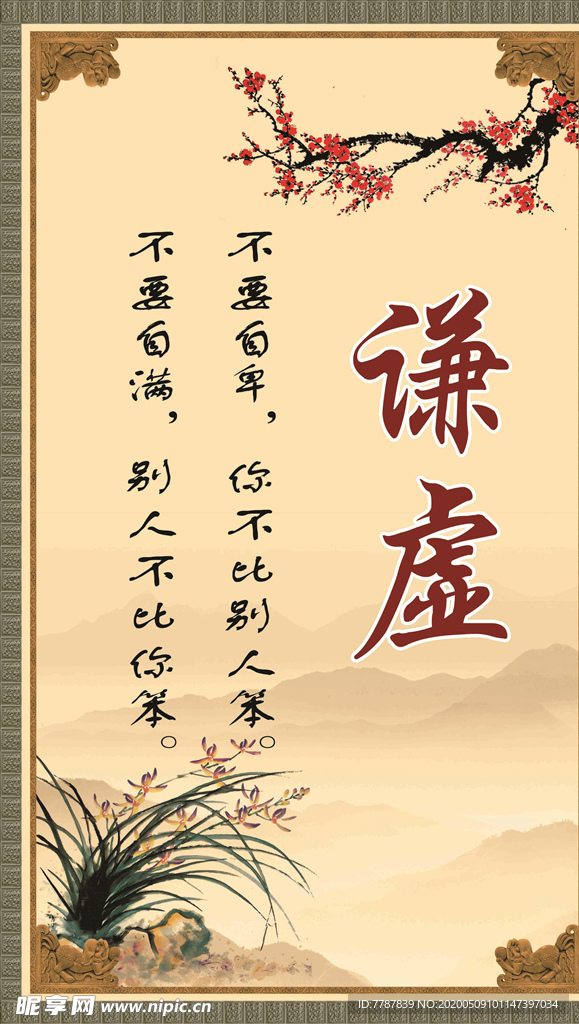 谦虚
不要自卑，你不比别人笨。
不要自满，别人不比你笨。
昵享网 www.nipic.cn
ID:7787839 NO:20200509101147397034